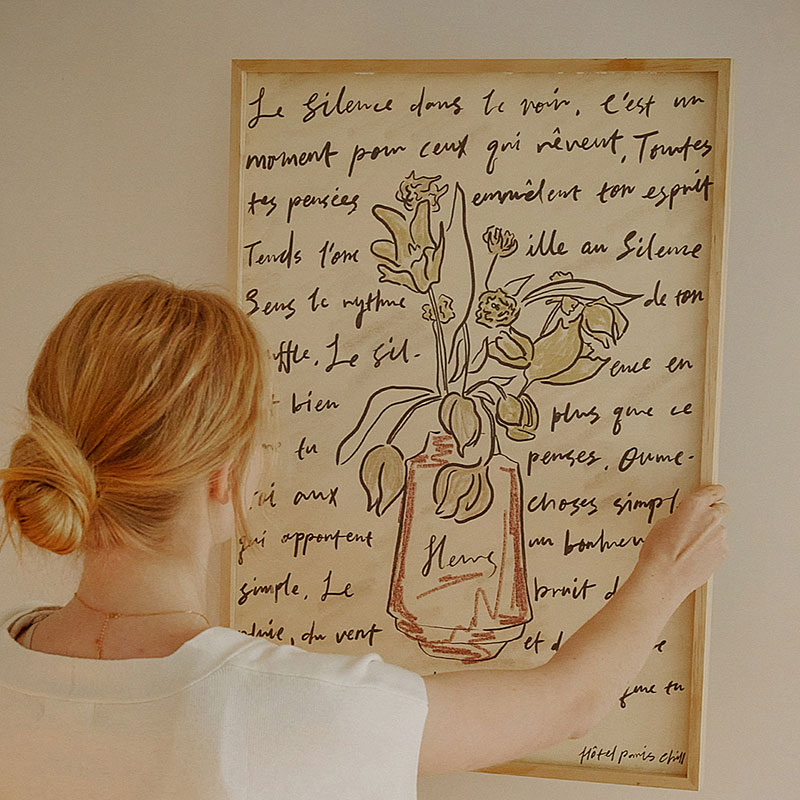 Le Silence dans le noir, C'est un
moment pour ceux qui rêvent, Toutes
tes pensées emmêlent ton esprit
Tends l'ore ille au Silence
Sens le rythme de ton
uffle. Le Sil- ence en
bien plus que ce
tu penses. Ouvre-
aux choses simpl
qui apportent un bonheu
simple. Le bruit d
pluie, du vent et d
que tu
fleurs
Hôtel paris chill